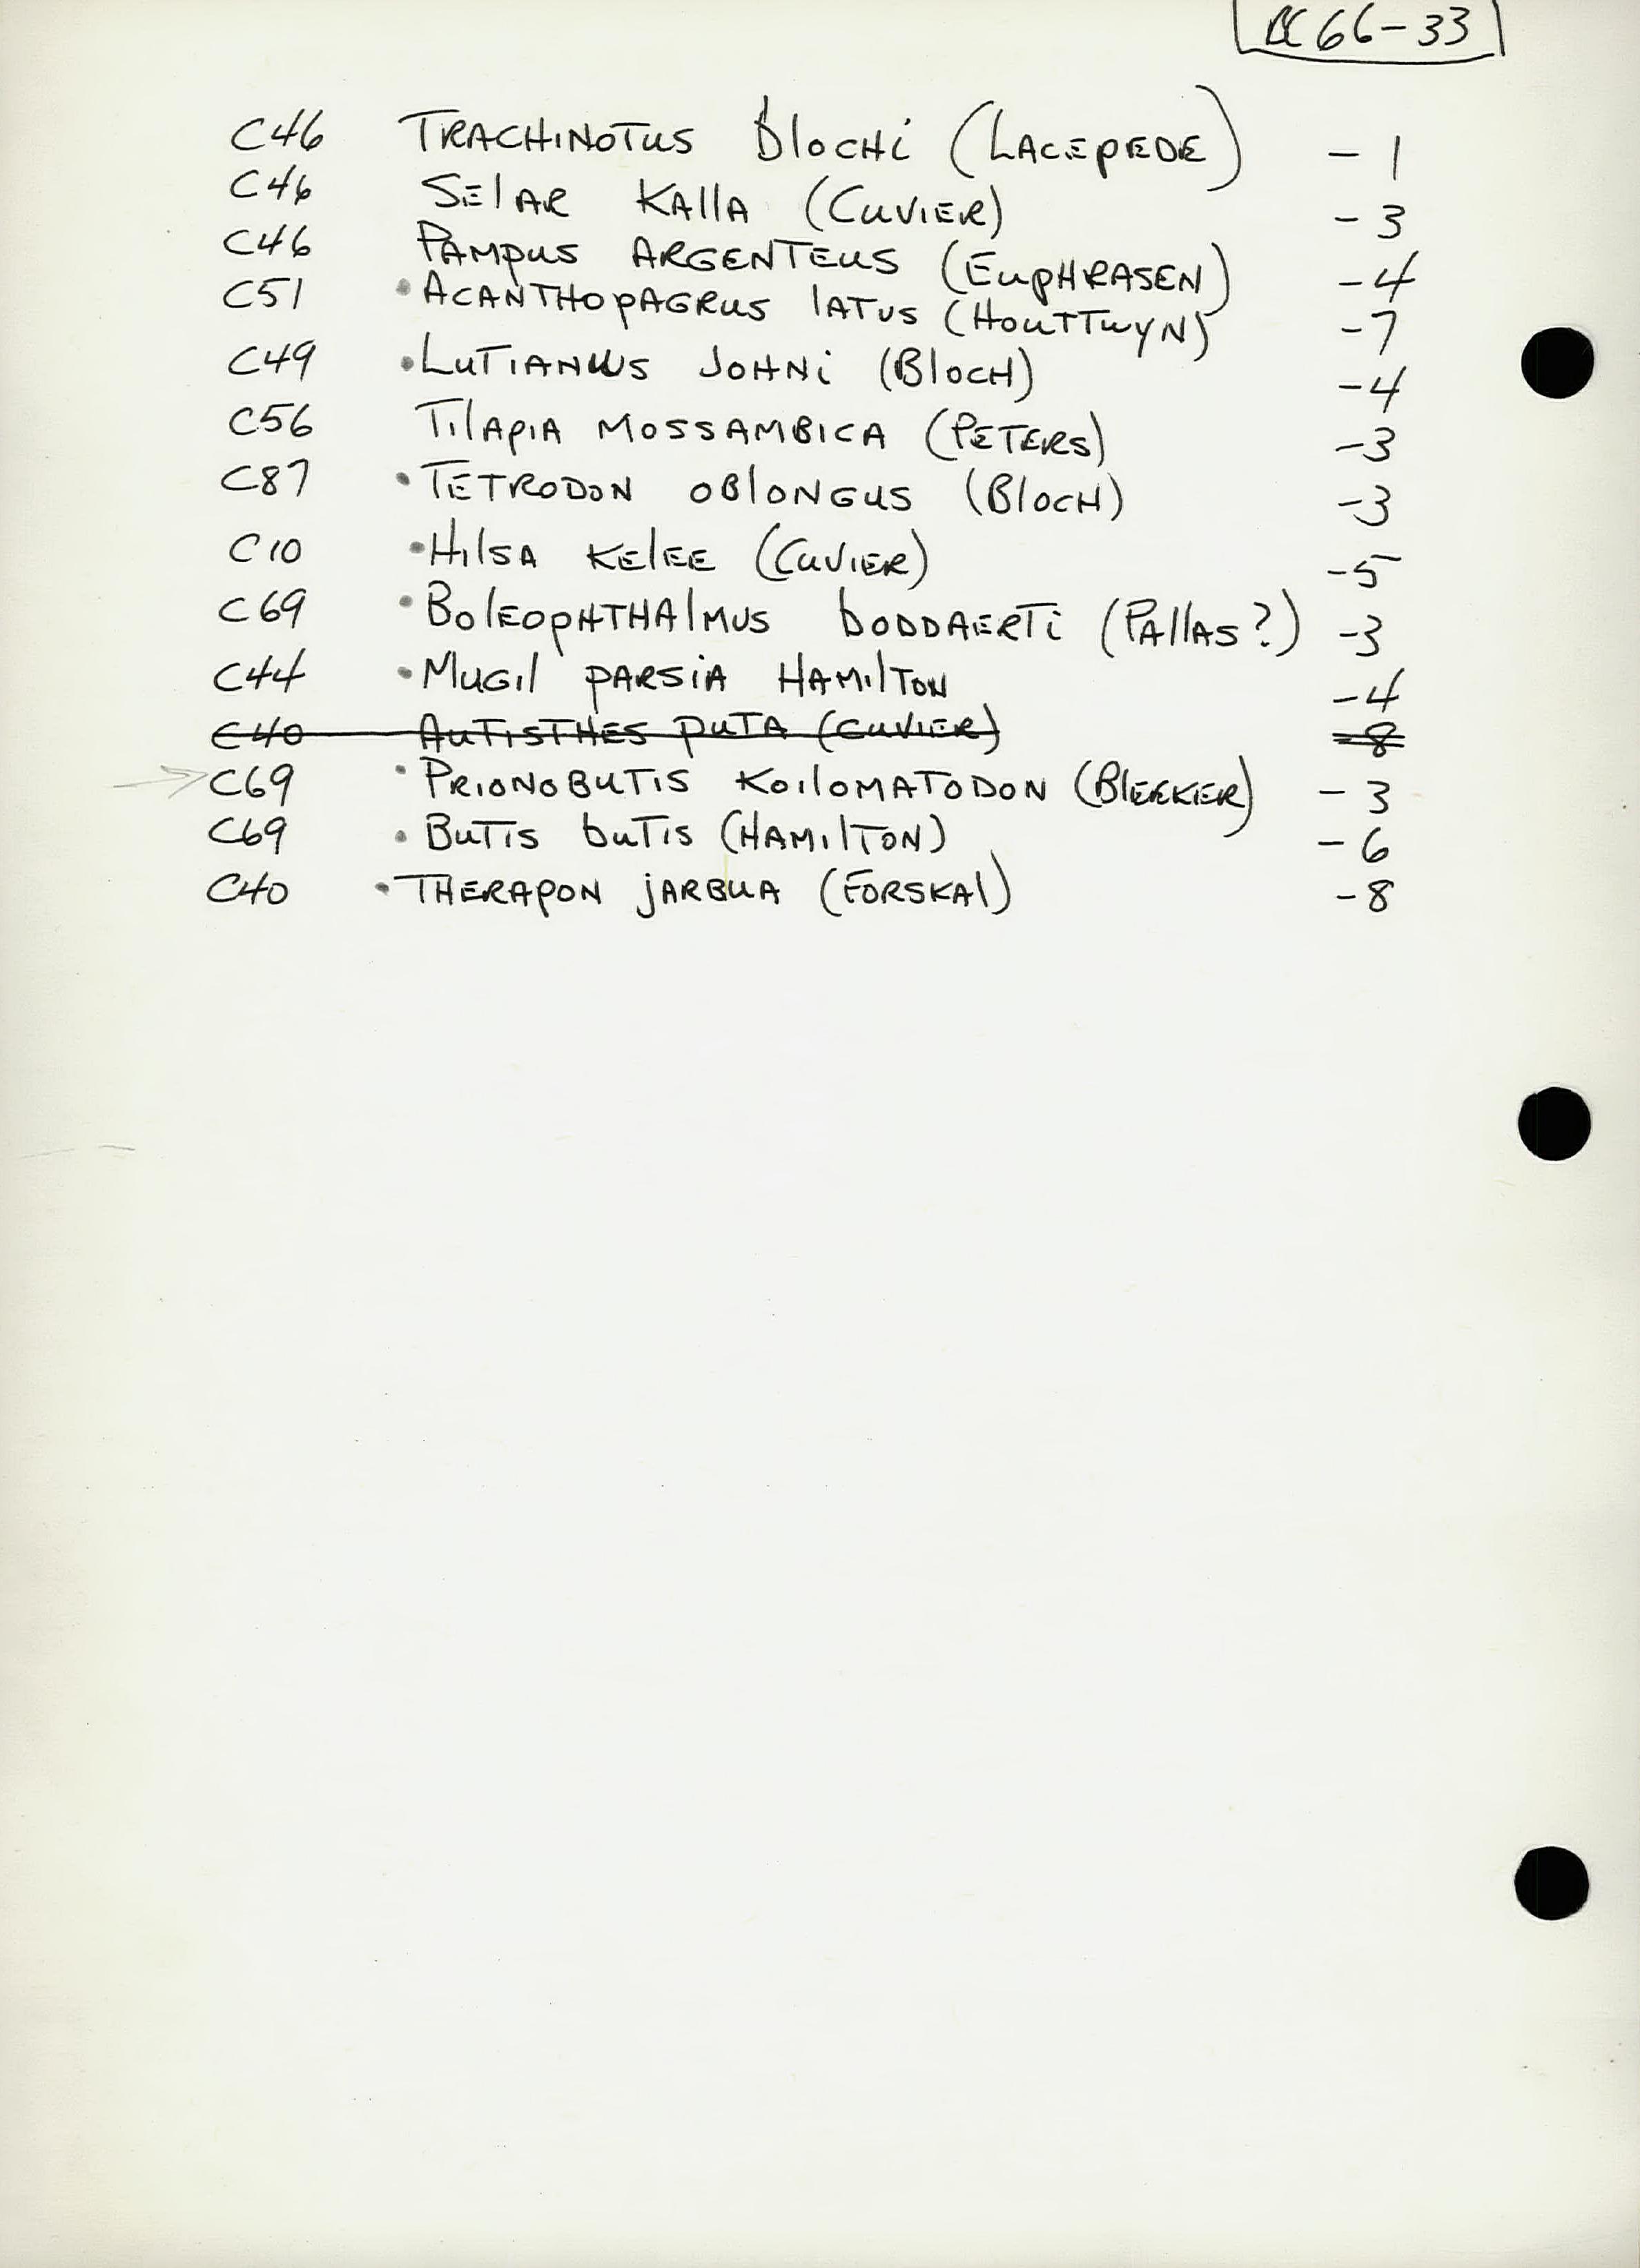 BC 66-33
C46 TRACHINOTUS blOCHi (LACEPEDE) - 1
C46 SElAR KAllA (CUVIER) - 3
C46 PAMPUS ARGENTEUS (EUPHRASEN) - 4
C51 • ACANTHOPAGRUS lATUS (HOUTTUYN) - 7
C49 • LUTIANUS JOHNi (BlOCH) - 4
C56 TIlAPIA MOSSAMBICA (PETERS) - 3
C87 • TETRODON OBlONGUS (BlOCH) - 3
C10 • HIlSA KElEE (CUVIER) - 5
C69 • BOlEOPHTHAlMUS bODDAERTi (PAllAS?) - 3
C44 • MUGIl PARSIA HAMIlTON - 4
C40 AUTISTHES PUTA (CUVIER) - 8
C69 • PRIONOBUTIS KOIlOMATODON (BlEEKER) - 3
C69 • BUTIS bUTIS (HAMIlTON) - 6
C40 • THERAPON jARBUA (FORSKAl) - 8